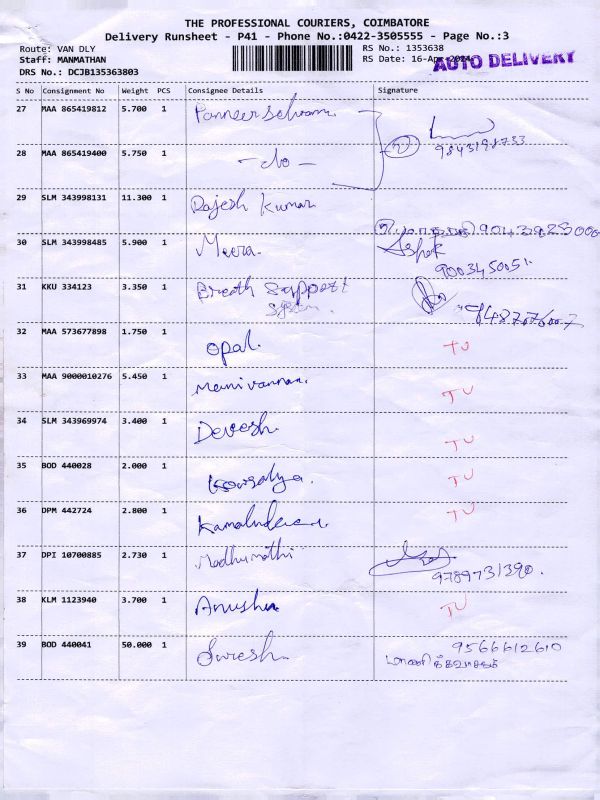 THE PROFESSIONAL COURIERS, COIMBATORE
Delivery Runsheet - P41 - Phone No.:0422-3505555 - Page No.:3
Route: VAN DLY RS No.: 1353638
Staff: MANMATHAN RS Date: 16-Apr-2024 AUTO DELIVERY
DRS No.: DCJB135363803
S No Consignment No Weight PCS Consignee Details Signature
27 MAA 865419812 5.700 1 Panneerselvam 9843198733
28 MAA 865419400 5.750 1 -do-
29 SLM 343998131 11.300 1 Rajesh Kumar
30 SLM 343998485 5.900 1 Meera. Ashok
9003450051.
31 KKU 334123 3.350 1 Breath Support
System 9487076007
32 MAA 573677898 1.750 1 Opal. TU
33 MAA 9000010276 5.450 1 Manivannan. TU
34 SLM 343969974 3.400 1 Devesh. TU
35 BOD 440028 2.000 1 Kowsalya. TU
36 DPM 442724 2.800 1 TU
37 DPI 10700885 2.730 1 Madhumathi
9789731390.
38 KLM 1123940 3.700 1 Anusha TU
39 BOD 440041 50.000 1 Suresh. 9566612610
மாணிக்கவாசகர்